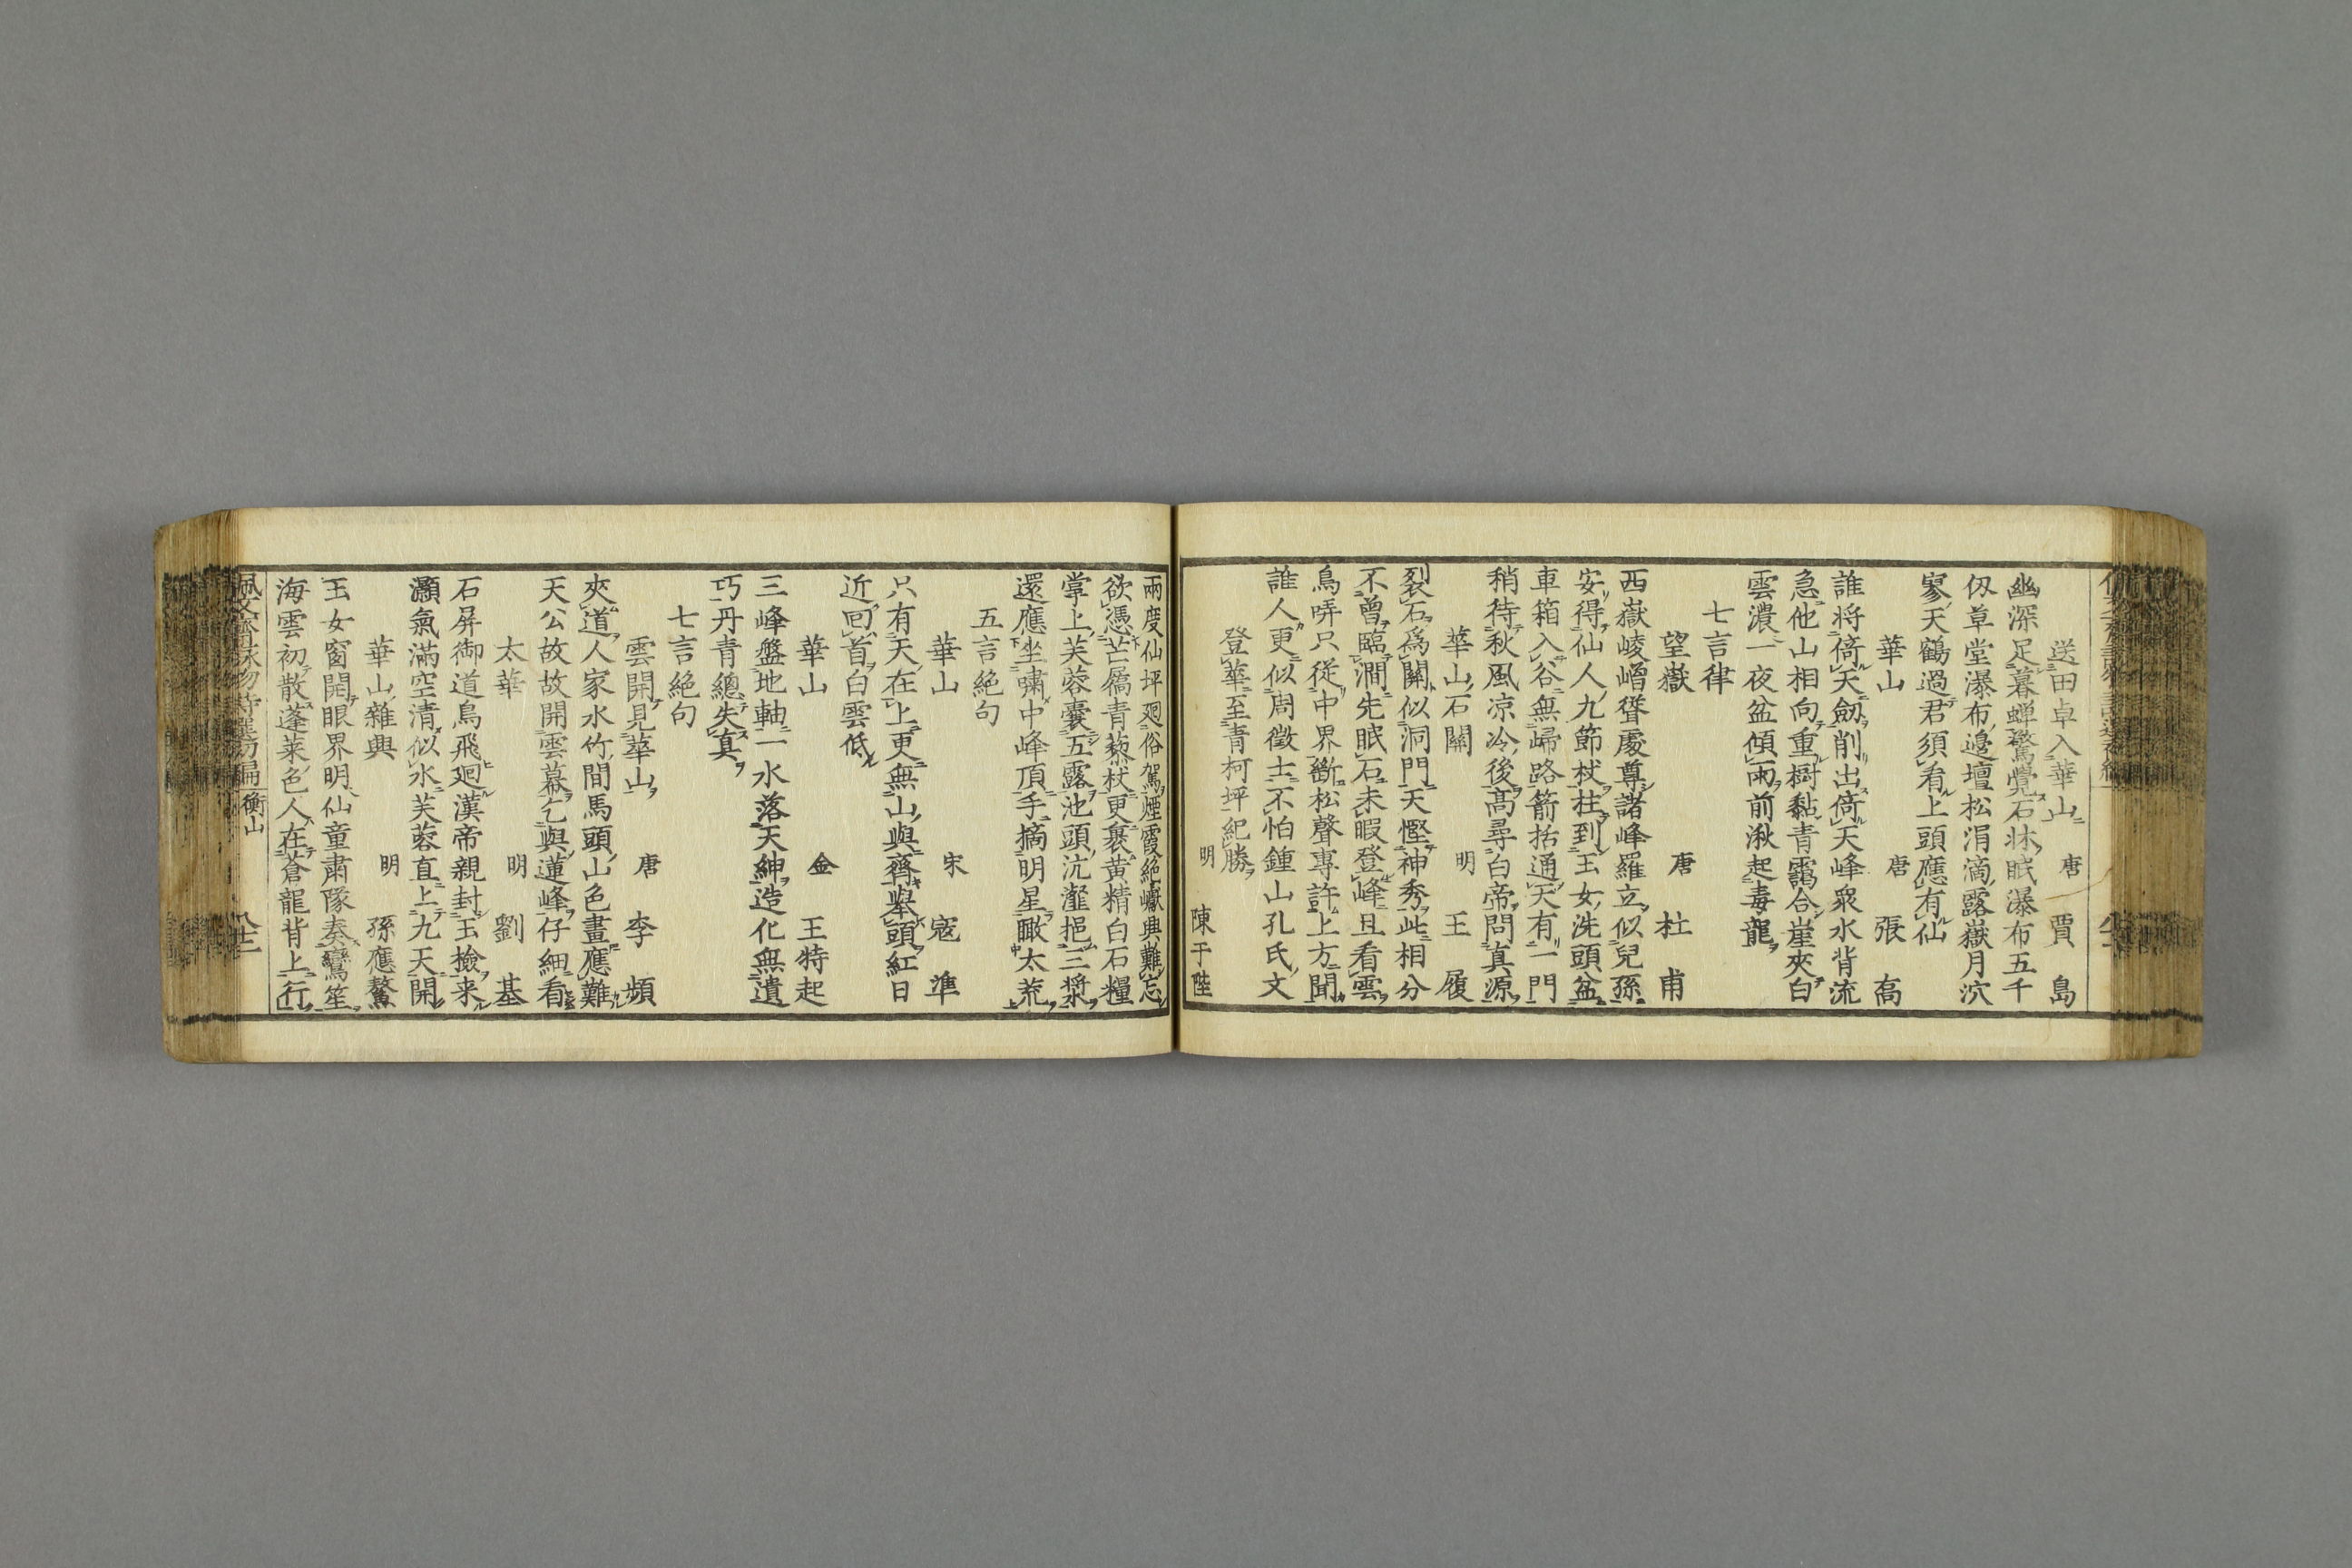 送田卓入華山 唐 賈島
幽深足暮蟬驚覺石牀眠瀑布五千
仭草堂瀑布邉壇松涓滴露嶽月泬
寥天鶴過君須看上頭應有仙
華山 唐 張高
誰将倚天劔削出倚天峰衆水背流
急他山相向重樹黏青靄合崖夾白
雲濃一夜盆傾雨前湫起毒龍
七言律
望嶽 唐 杜甫
西嶽崚嶒聳處尊諸峰羅立似兒孫
安得仙人九節杖柱到玉女洗頭盆
車箱入谷無歸路箭括通天有一門
稍待秋風凉冷後髙尋白帝問真源
華山石關 明 王履
裂石爲關似洞門天慳神秀此相分
不曾臨澗先眠石未暇登峰且看雲
鳥哢只從中界斷松聲專許上方聞
誰人更似周徵士不怕鍾山孔氏文
登華至青柯坪紀勝 明 陳于陛
兩度仙坪廻俗駕煙霞絶巘興難忘
欲憑芒屩青藜杖更褁黄精白石糧
掌上芙蓉囊五露池頭沆瀣挹三漿
還應坐嘯中峰頂手摘明星瞰太荒
五言絶句
華山 宋 寇準
只有天在上更無山與齊舉頭紅日
近回首白雲低
華山 金 王特起
三峰盤地軸一水落天紳造化無遺
巧丹青總失真
七言絶句
雲開見華山 唐 李頻
夾道人家水竹間馬頭山色畫應難
天公故故開雲幕乞與蓮峰仔細看
太華 明 劉基
石屏御道鳥飛廻漢帝親封玉檢来
灝氣滿空清似水芙蓉直上九天開
華山雜興 明 孫應鰲
玉女窗開眼界明仙童肅隊奏鸞笙
海雲初散蓬莱色人在蒼龍背上行
衡山